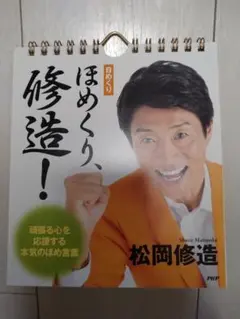 日めくり
ほめくり、
修造!
頑張る心を
応援する
本気のほめ言葉
Shuzo Matsuoka
松岡修造
PHP